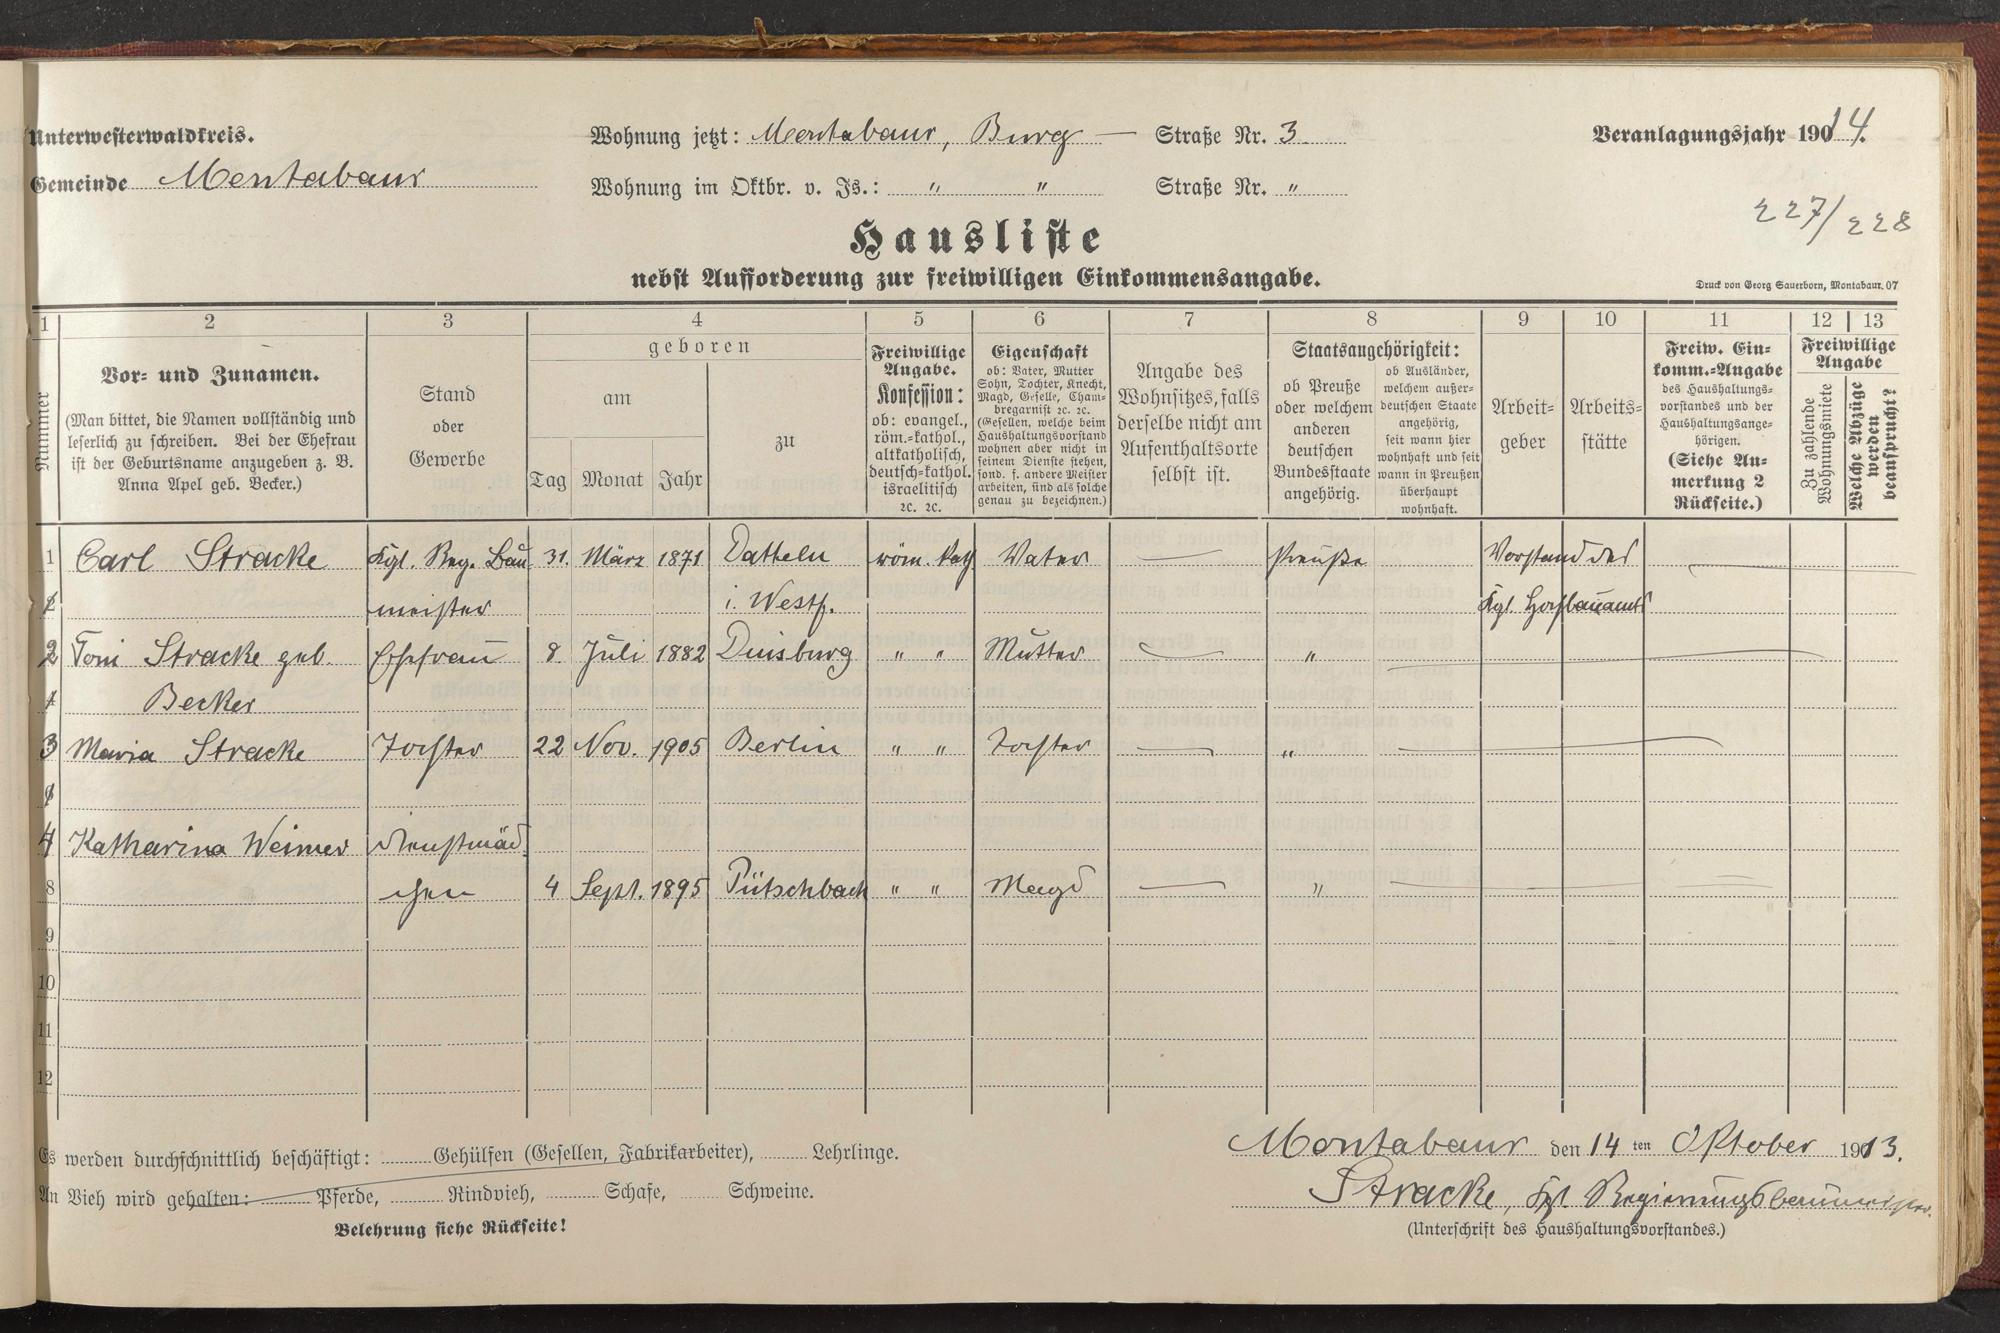 Unterwesterwaldkreis.
Gemeinde Montabaur
Wohnung jetzt: Montabaur, Burg — Straße Nr. 3
Wohnung im Oktbr. v. Js.: " " Straße Nr. "
Veranlagungsjahr 1914.
227/228
Hausliste
nebst Aufforderung zur freiwilligen Einkommensangabe.
Druck von Georg Sauerborn, Montabaur. 07
1 2 3 4 5 6 7 8 9 10 11 12 13
Nummer
Vor- und Zunamen.
(Man bittet, die Namen vollständig und
leserlich zu schreiben. Bei der Ehefrau
ist der Geburtsname anzugeben z. B.
Anna Apel geb. Becker.)
Stand
oder
Gewerbe
geboren
am
Tag Monat Jahr
zu
Freiwillige
Angabe.
Konfession:
ob: evangel.,
röm.-kathol.,
altkatholisch,
deutsch-kathol.
israelitisch
2c. 2c.
Eigenschaft
ob: Vater, Mutter
Sohn, Tochter, Knecht,
Magd, Geselle, Cham-
bregarnist 2c. 2c.
(Gesellen, welche beim
Haushaltungsvorstand
wohnen aber nicht in
seinem Dienste stehen,
sond. f. andere Meister
arbeiten, sind als solche
genau zu bezeichnen.)
Angabe des
Wohnsitzes, falls
derselbe nicht am
Aufenthaltsorte
selbst ist.
Staatsangehörigkeit:
ob Preuße
oder welchem
anderen
deutschen
Bundesstaate
angehörig.
ob Ausländer,
welchem außer-
deutschen Staate
angehörig,
seit wann hier
wohnhaft und seit
wann in Preußen
überhaupt
wohnhaft.
Arbeit-
geber
Arbeits-
stätte
Freiw. Ein-
komm.-Angabe
des Haushaltungs-
vorstandes und der
Haushaltungsange-
hörigen.
(Siehe An-
merkung 2
Rückseite.)
Freiwillige
Angabe
Zu zahlende
Wohnungsmiete
Welche Abzüge
werden
beansprucht?
1 Carl Stracke Kgl. Reg. Bau- 31. März 1871 Datteln röm. kath. Vater — Preuße Vorstand des
meister i. Westf. Kgl. Hochbauamts
2 Toni Stracke geb. Ehefrau 8 Juli 1882 Duisburg " " Mutter — "
Becker
3 Maria Stracke Tochter 22 Nov. 1905 Berlin " " Tochter — "
4 Katharina Weimer Dienstmäd
8 chen 4 Sept. 1895 Pütschbach " " Magd — "
9
10
11
12
Es werden durchschnittlich beschäftigt: Gehülfen (Gesellen, Fabrikarbeiter), Lehrlinge.
An Vieh wird gehalten: Pferde, Rindvieh, Schafe, Schweine.
Belehrung siehe Rückseite!
Montabaur den 14 ten Oktober 1913.
Stracke, Kgl. Regierungsbaumeister.
(Unterschrift des Haushaltungsvorstandes.)